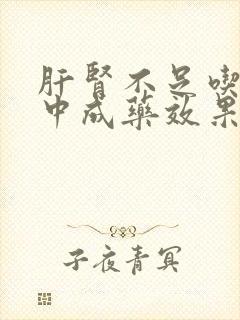 肝肾不足喫
中成藥效果
子夜青冥